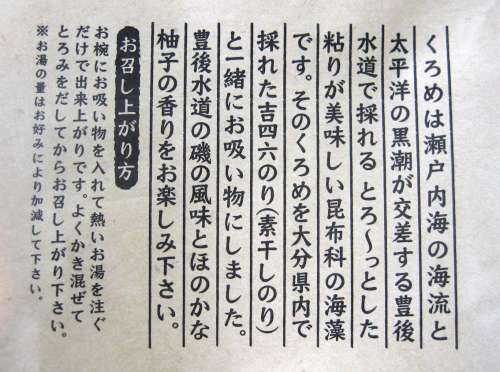 くろめは瀬戸内海の海流と
太平洋の黒潮が交差する豊後
水道で採れる とろ〜っとした
粘りが美味しい昆布科の海藻
です。そのくろめを大分県内で
採れた吉四六のり(素干しのり)
と一緒にお吸い物にしました。
豊後水道の磯の風味とほのかな
柚子の香りをお楽しみ下さい。
お召し上がり方
お椀にお吸い物を入れて熱いお湯を注ぐ
だけで出来上がりです。よくかき混ぜて
とろみをだしてからお召し上がり下さい。
※お湯の量はお好みにより加減して下さい。